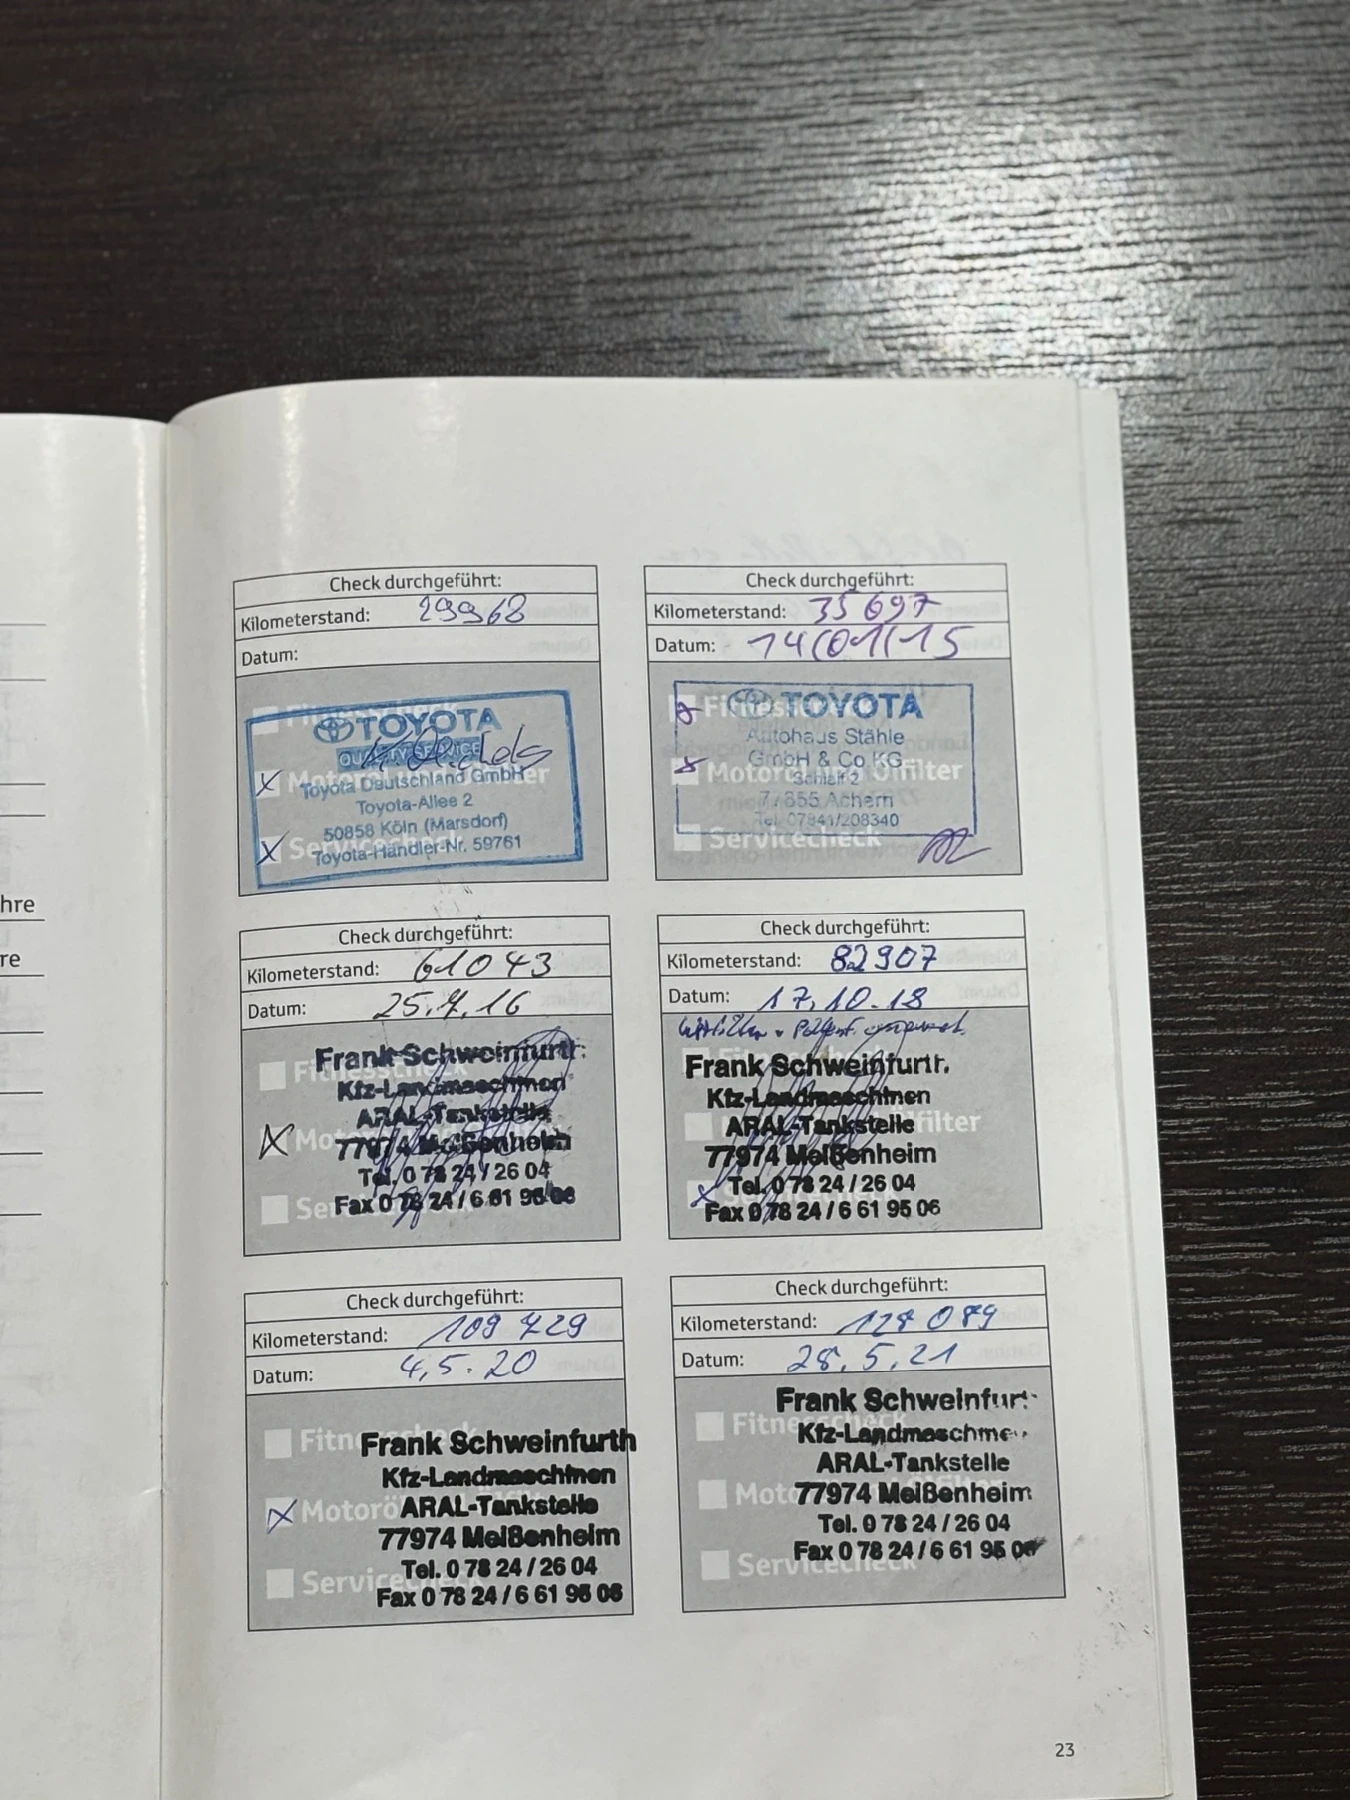 hre
re
Check durchgeführt:
Kilometerstand: 29968
Datum:
Fitnesscheck
TOYOTA
QUALITY SERVICE
Motoröl und Ölfilter
Toyota Deutschland GmbH
Toyota-Allee 2
50858 Köln (Marsdorf)
Servicecheck
Toyota-Händler-Nr. 59761
Check durchgeführt:
Kilometerstand: 35697
Datum: 14/01/15
Fitnesscheck
TOYOTA
Autohaus Stähle
GmbH & Co.KG
Motoröl und Ölfilter
77855 Achern
Tel. 07841/208340
Servicecheck
Check durchgeführt:
Kilometerstand: 61043
Datum: 25.7.16
Frank Schweinfurth
Fitnesscheck
Kfz-Landmaschinen
ARAL-Tankstelle
77974 Meißenheim
Tel. 0 78 24 / 26 04
Fax 0 78 24 / 6 61 95 06
Check durchgeführt:
Kilometerstand: 82907
Datum: 17.10.18
Frank Schweinfurth
Kfz-Landmaschinen
ARAL-Tankstelle
Ölfilter
77974 Meißenheim
Tel. 0 78 24 / 26 04
Servicecheck
Fax 0 78 24 / 6 61 95 06
Check durchgeführt:
Kilometerstand: 109729
Datum: 4.5.20
Fitnesscheck
Frank Schweinfurth
Kfz-Landmaschinen
Motoröl
ARAL-Tankstelle
77974 Meißenheim
Tel. 0 78 24 / 26 04
Servicecheck
Fax 0 78 24 / 6 61 95 06
Check durchgeführt:
Kilometerstand: 127089
Datum: 28.5.21
Frank Schweinfurt
Fitnesscheck
Kfz-Landmaschinen
ARAL-Tankstelle
77974 Meißenheim
Tel. 0 78 24 / 26 04
Fax 0 78 24 / 6 61 95 06
Servicecheck
23